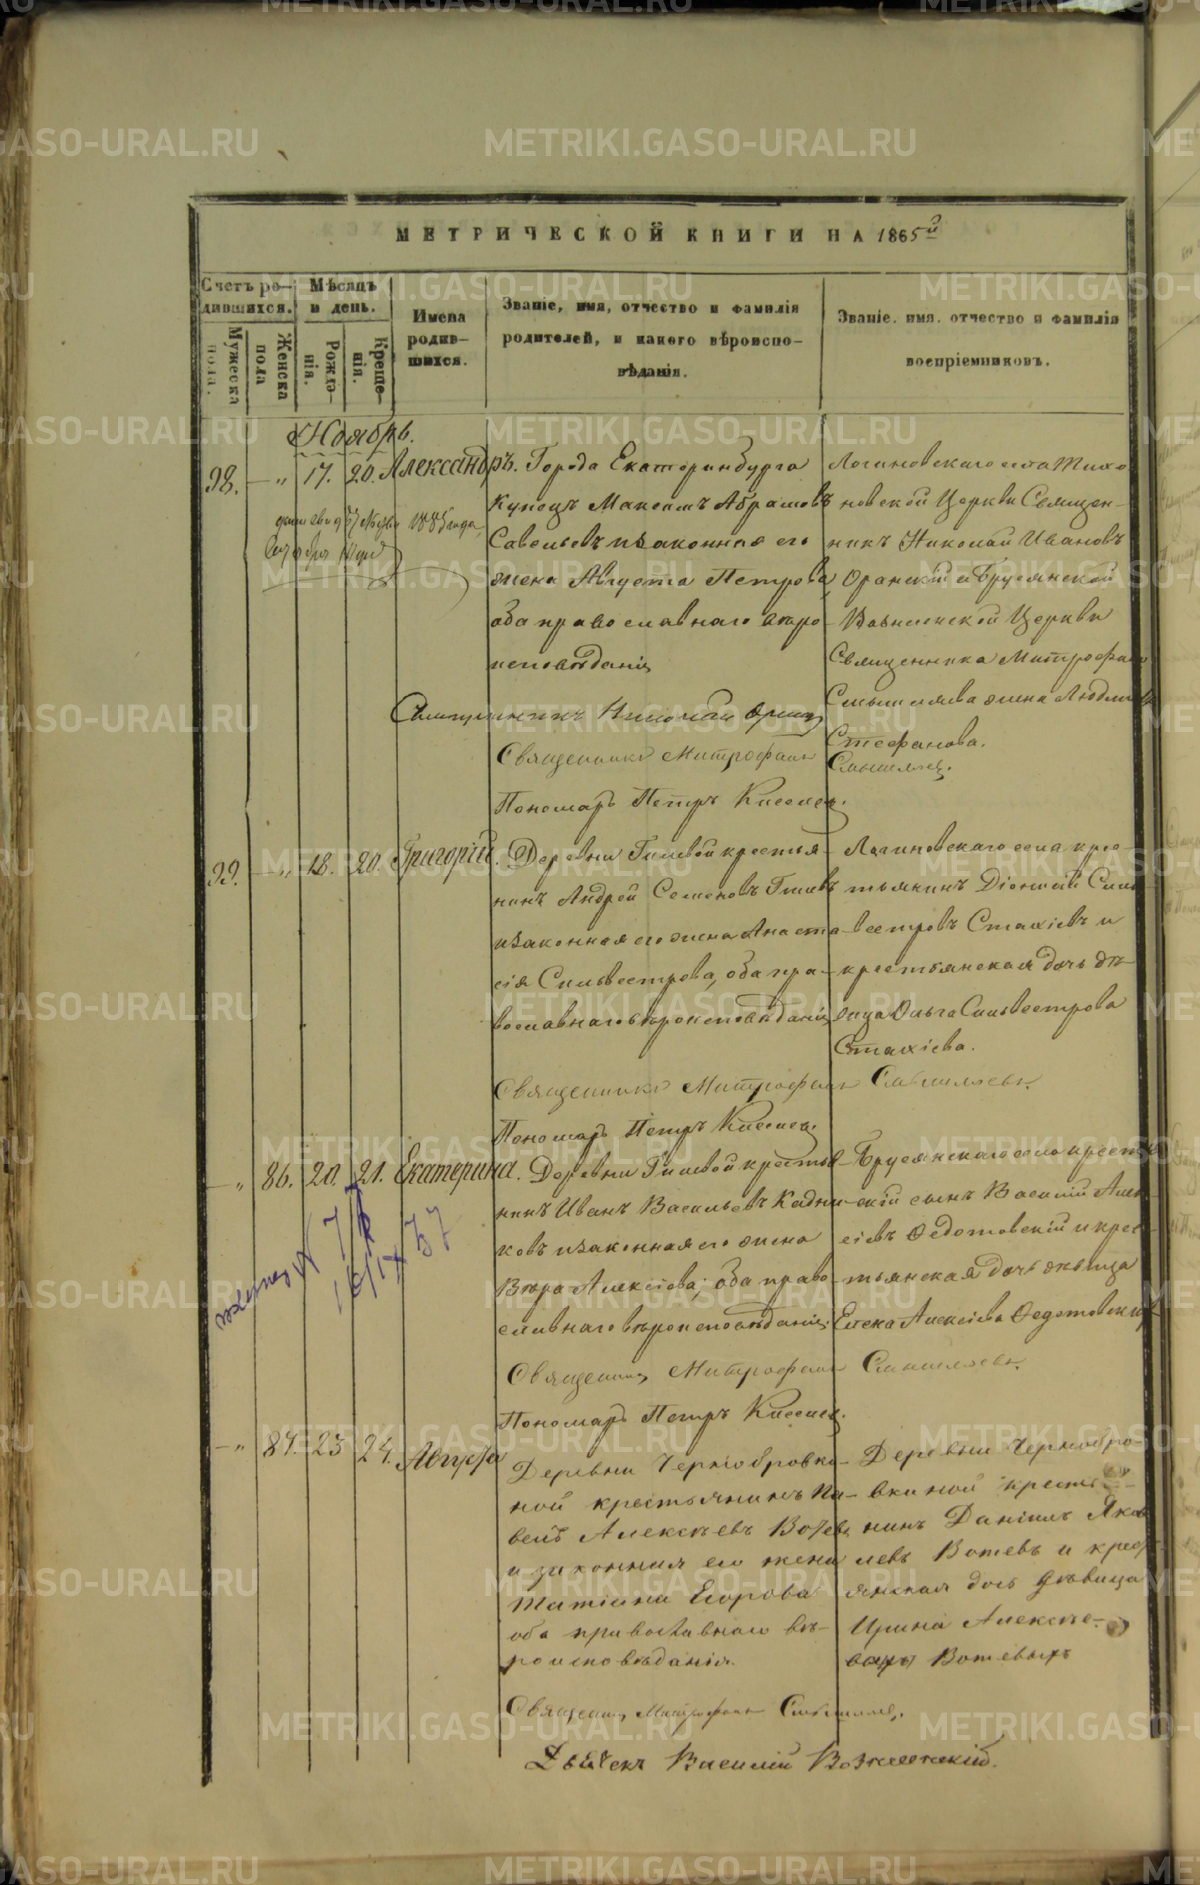 МЕТРИЧЕСКОЙ КНИГИ НА 1865й
Счетъ ро-
дившихся.
Мѣсяцъ
и день.
Имена
родив-
шихся.
Званіе, имя, отчество и фамилія
родителей, и какого вѣроиспо-
вѣданія.
Званіе, имя, отчество и фамилія
воспріемниковъ.
Мужеска
пола.
Женска
пола
Рожде-
нія.
Креще-
нія.
Ноябрь.
98. — „ 17. 20. Александръ.
Города Екатеринбурга
Купецъ Максимъ Абрамовъ
Савельевъ и законная его
жена Августа Петрова
оба православнаго вѣро-
исповѣданія
Логиновскаго села Тихо-
новской Церкви Священ-
никъ Николай Ивановъ
Оранскій и Брусянской
Вознесенской Церкви
Священника Митрофана
Смышляева жена Людмила
Стефанова.
1885 года
Священникъ Николай
Священникъ Митрофанъ Смышляев.
Пономарь Петръ Киселев.
99. — „ 18. 20. Григорій.
Деревни Гилевой крестья-
нинъ Андрей Семеновъ Гилевъ
и законная его жена Анаста-
сія Сильвестрова, оба пра-
вославнаго вѣроисповѣданія
Логиновскаго села крес-
тьянинъ Діонисій Силь-
вестровъ Стахіевъ и
крестьянская дочь дѣ-
вица Ольга Сильвестрова
Стахіева.
Священникъ Митрофанъ Смышляевъ.
Пономарь Петръ Киселев.
— „ 86. 20. 21. Екатерина.
Деревни Гилевой крестья-
нинъ Иванъ Васильевъ Кадни-
ковъ и законная его жена
Вѣра Алексіева; оба право-
славнаго вѣроисповѣданія;
Брусянскаго села крестьян-
скій сынъ Василій Алек-
сіевъ Ѳедотовскій и крес-
тьянская дочь дѣвица
Елена Алексіева Ѳедотовскихъ
Священник Митрофанъ Смышляевъ.
Пономарь Петръ Киселев.
— „ 87. 23 24. Августа
Деревни Чернобровки-
ной крестьянинъ Па-
велъ Алексѣевъ Вотевъ
и законная его жена
Татіана Егорова
оба православнаго вѣ-
роисповѣданія.
Деревни Чернобро-
вкиной крестья-
нинъ Даніилъ Яков-
левъ Вотевъ и крест-
янская дочь дѣвица
Ирина Алексѣе-
Вотевыхъ
Священник Митрофанъ Смышляев.
Дьячекъ Василій Вознесенскій.